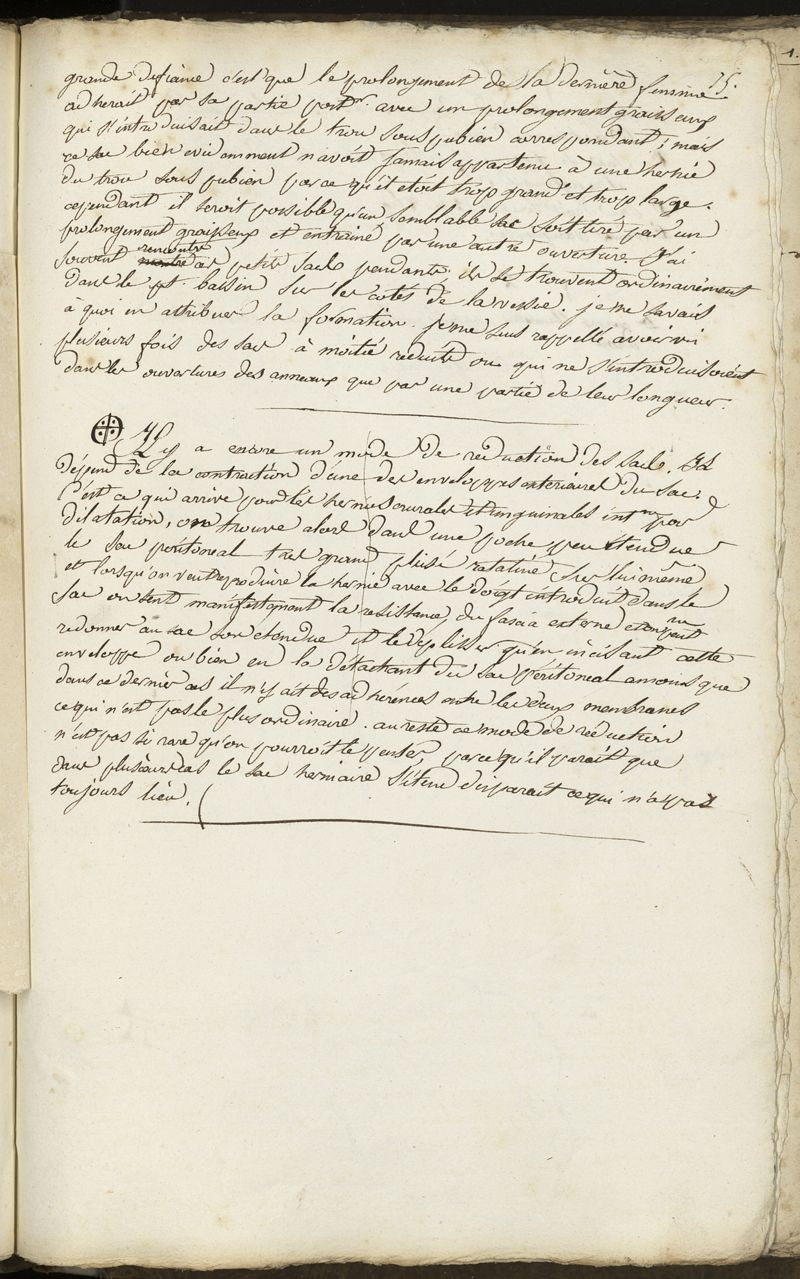 75.
grande defiance c'est que le prolongement de la derniere femme
adherait par sa partie postr. avec un prolongement graisseux
qui s'introduisait dans le trou sous pubien correspondant; mais
ce sac bien evidemment n'avoit jamais appartenu à une hernie
du trou sous pubien parce qu'il etoit trop grand et trop large.
cependant il seroit possible qu'un semblable sac soit tiré par un
prolongement graisseux et entrainé par une autre ouverture. J'ai
souvent rencontré ces petits sacs pendants. ils se trouvent ordinairement
dans le pt. bassin sur les cotés de la vessie. je ne savais
à quoi en attribuer la formation. je me suis rappellé avoir vu
plusieurs fois des sacs à moitié reduits ou qui ne s'introduisoient
dans les ouvertures des anneaux que par une partie de leur longueur.
Il y a encore un mode de reduction des sacs. Il
dépend de la contraction d'une des enveloppes exterieures du sac.
C'est ce qui arrive pour les hernies crurales et inguinales intn. par
dilatation, on trouve alors dans une poche peu étendue
le sac péritoneal tres grand plissé ratatiné sur lui même
et lorsqu'on veut reproduire la hernie avec le doigt introduit dans le
sac on sent manifestement la resistance du fascia externe et on ne peut
redonner au sac son etendue et le deplisser qu'en incisant cette
enveloppe ou bien en la détachant du sac péritoneal amoins que
dans ce dernier cas il n'y ait des adhérences entre les deux membranes
ce qui n'est pas le plus ordinaire. au reste ce mode de réduction
n'est pas si rare qu'on pourroit le penser, parce qu'il parait que
dans plusieurs cas le sac herniaire s'étend disparait ce qui n'a pas
toujours lieu.
1.